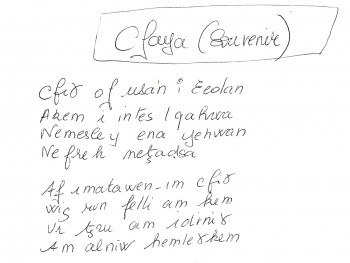 Cfaya (Souvenir)
Cfiɣ of usan i Eedlan
Akem i intes lqahwa
Nemesley ena yehwan
Nefreh meẓadsa
Af imatawen-im cfiɣ
Wig run felli am kem
Ur ţẓru am idiniɣ
Am alniw hemleɣkem